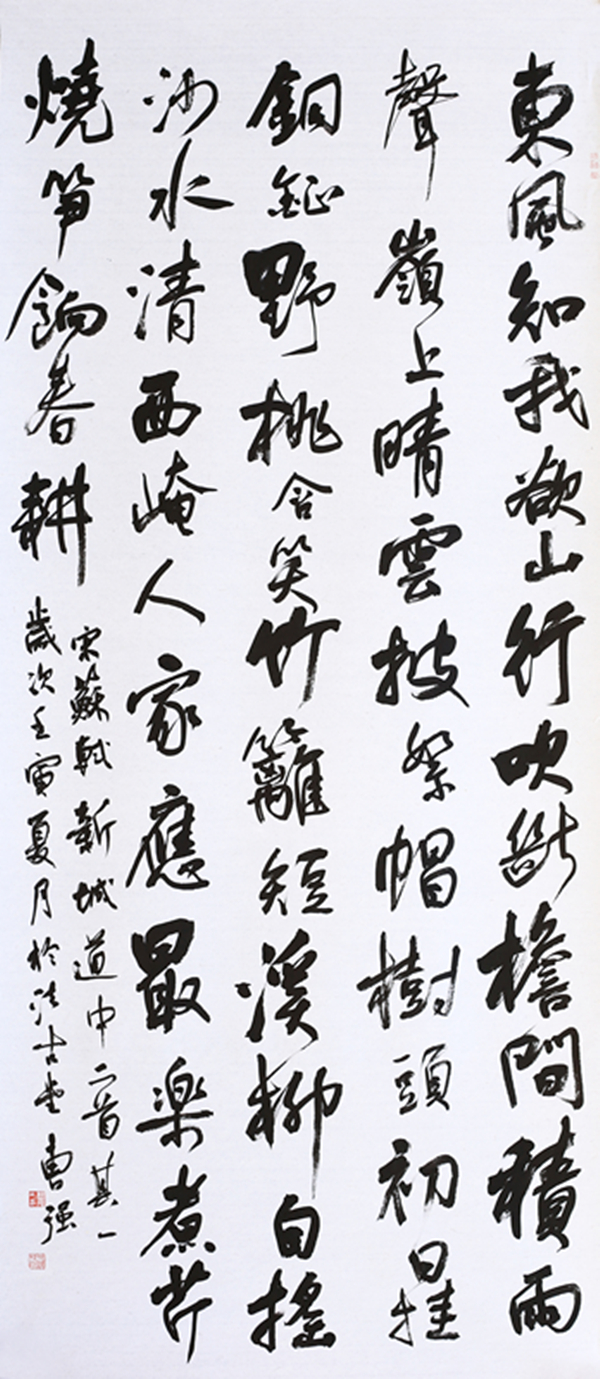 東風知我欲山行吹斷檐間積雨
聲嶺上晴雲披絮帽樹頭初日挂
銅鉦野桃含笑竹籬短溪柳自搖
沙水清西崦人家應最楽煮芹
燒筍餉春耕
宋蘇軾新城道中二首其一
歲次壬寅夏月於法古堂曹强